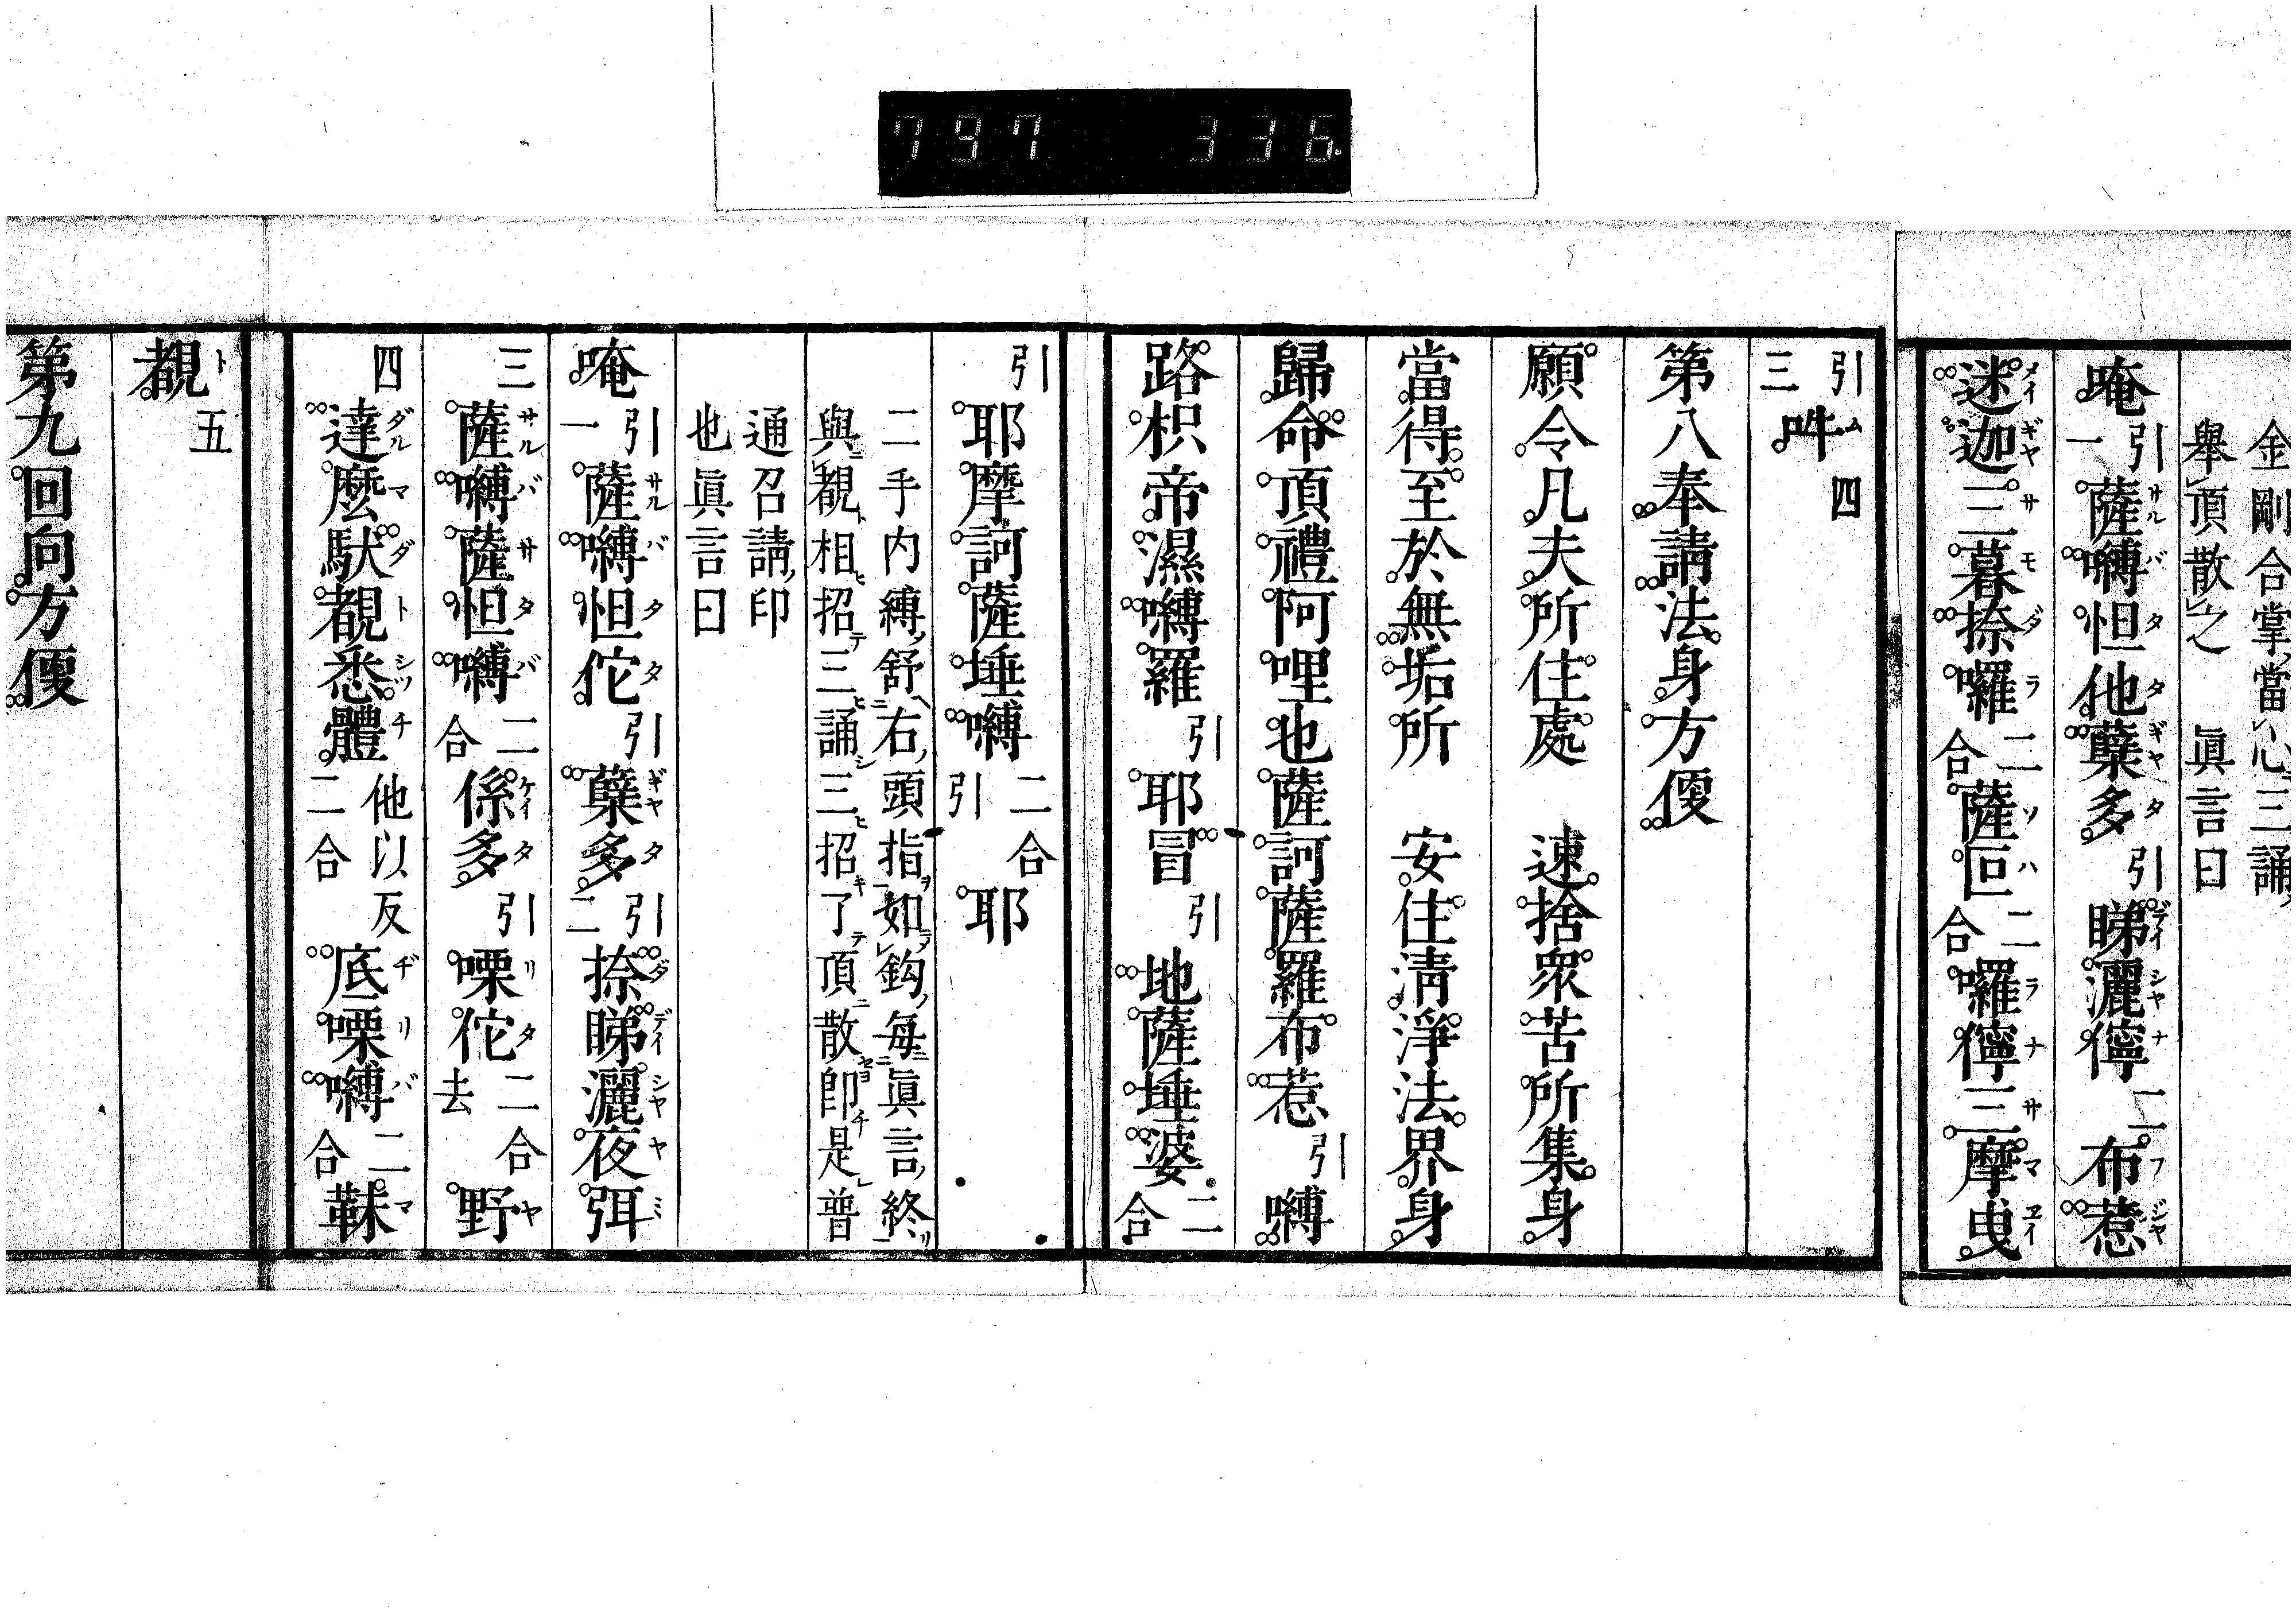 797 336
金剛合掌當心三誦
舉頂散之 眞言曰
唵引一薩嚩怛他蘖多引睇灑儜二布惹
迷迦三暮捺囉二合薩叵二合囉儜三摩曳
引三吽四
第八奉請法身方便
願令凡夫所住處 速捨衆苦所集身
當得至於無垢所 安住清淨法界身
歸命頂禮阿哩也薩訶薩羅布惹引嚩
路枳帝濕嚩羅引耶冒引地薩埵婆二合
引耶摩訶薩埵嚩二合引耶
二手内縛舒右頭指如鈎每眞言終
與覩相招三誦三招了頂散卽是普
通召請印
也眞言曰
唵引一薩嚩怛佗引蘖多引二捺睇灑夜弭
三薩嚩薩怛嚩二合係多引㗚佗二合去野
四達麼馱覩悉體他以反二合底㗚嚩二合靺
覩五
第九回向方便